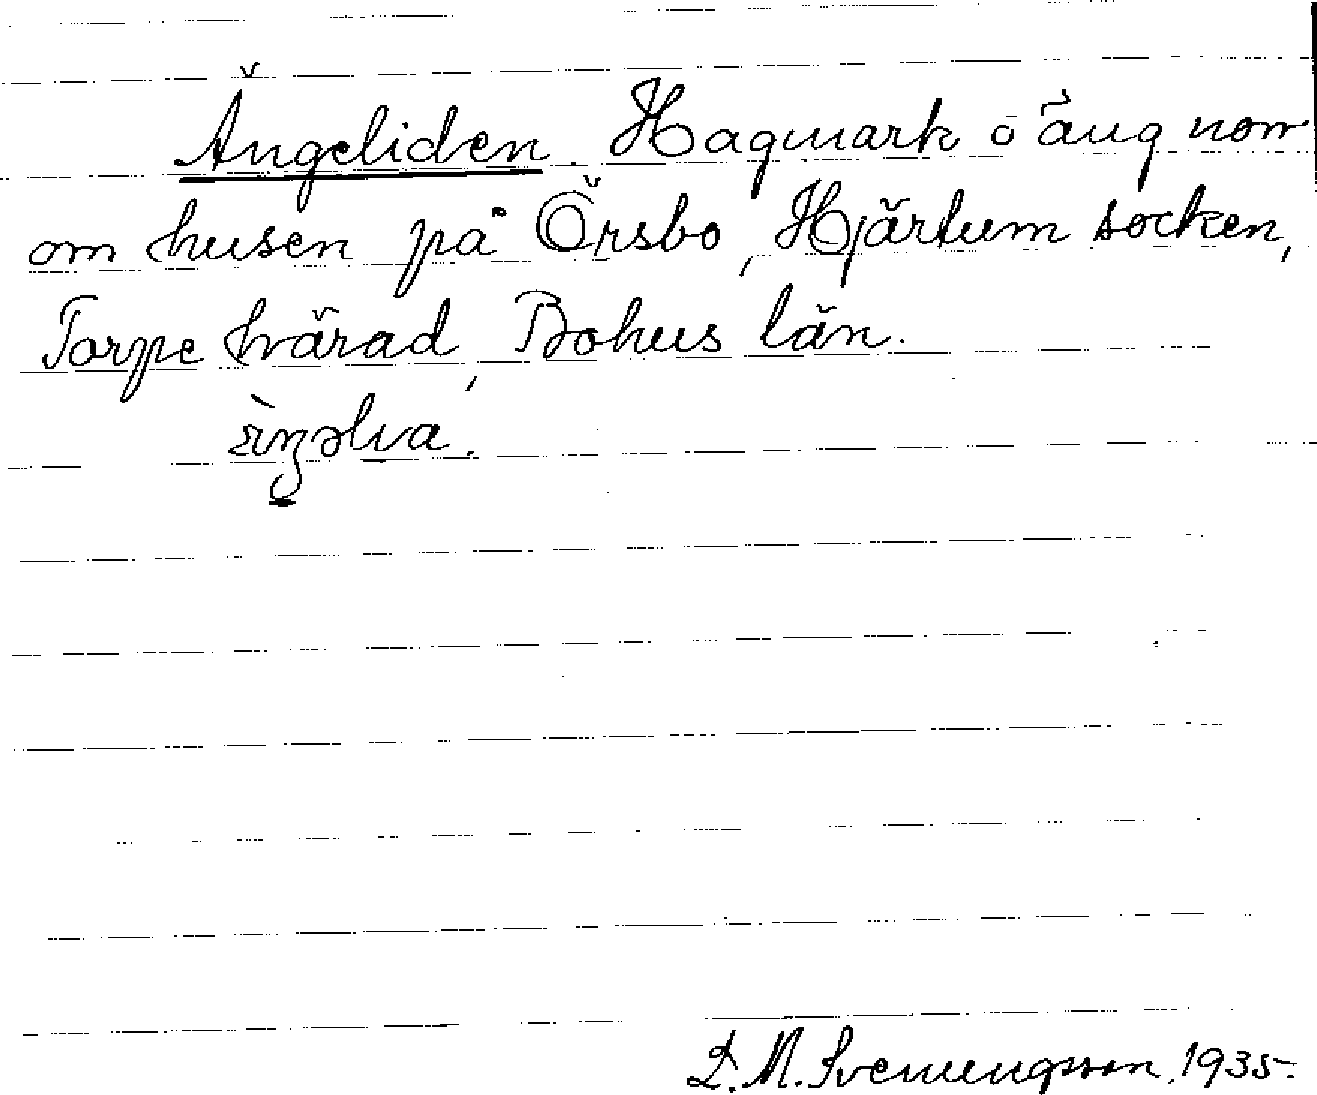 Ängeliden. Hagmark o äng norr
om husen på Örsbo, Hjärtum socken,
Torpe härad, Bohus län.
L. M. Svenungsson, 1935.